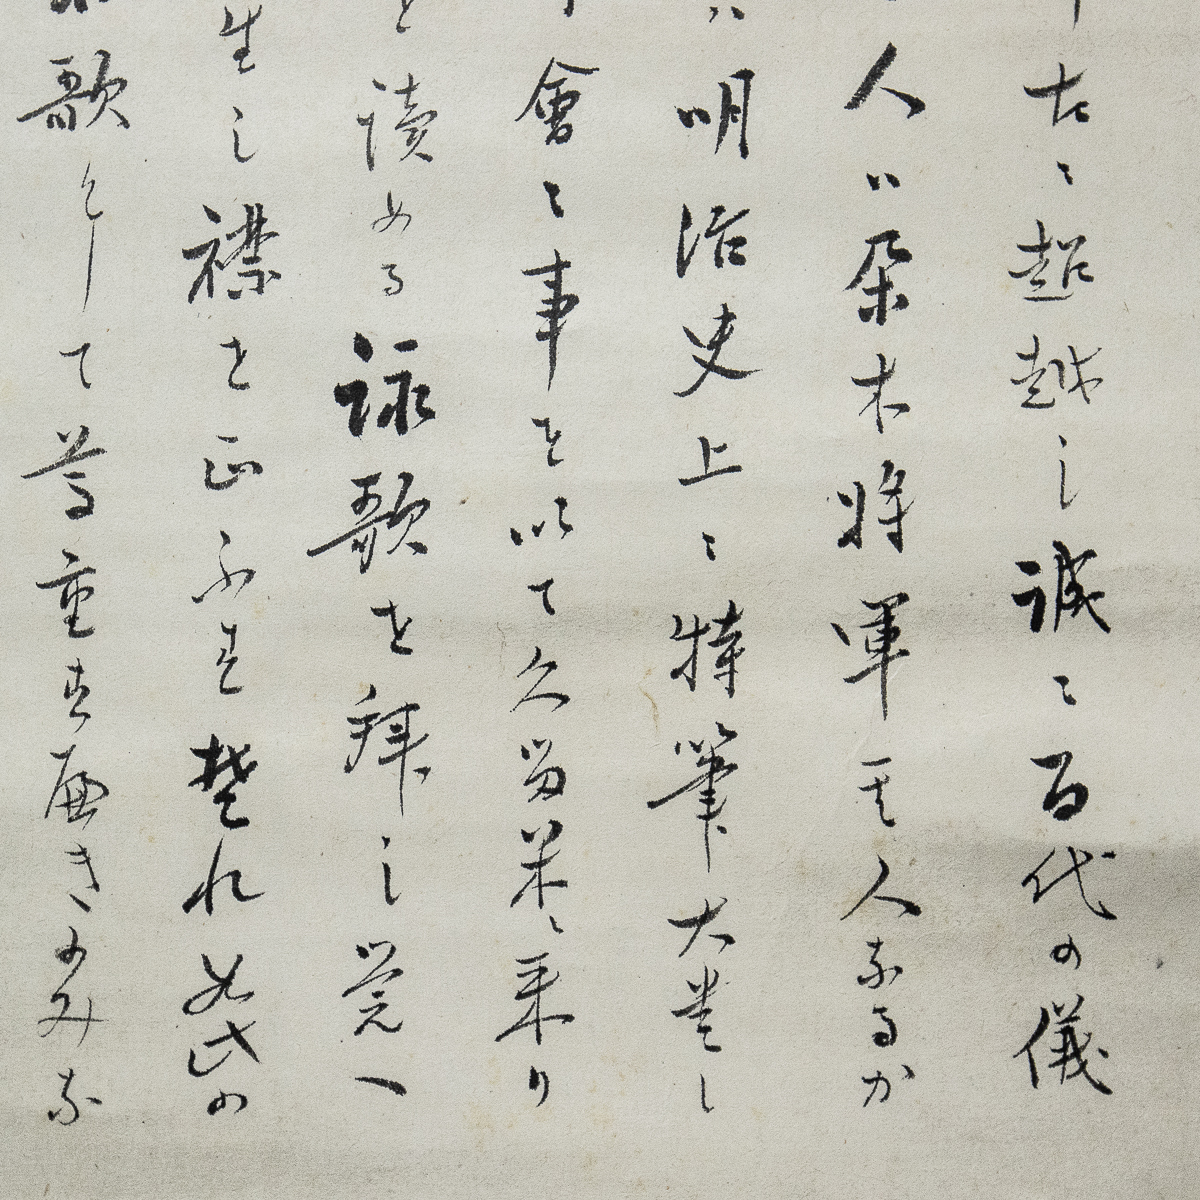 古ニ超越し誠ニ百代の儀
人ハ乃木将軍其人なるか
ハ明治史上ニ特筆大書し
會ニ事を以て久留米ニ来り
と読める詠歌を拝し覚へ
生し襟を正ふす楚れ如此の
歌として尊重す扁きのみな